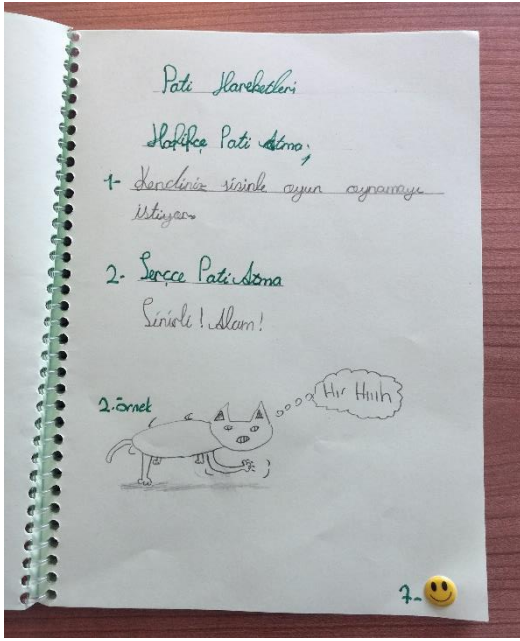 Pati Hareketleri
Hafifçe Pati Atma;
1- Kendiniz sizinle oyun oynamayı
istiyor.
2- Sertçe Pati Atma
Sinirli! Alam!
2. örnek
Hır Hııh
7-